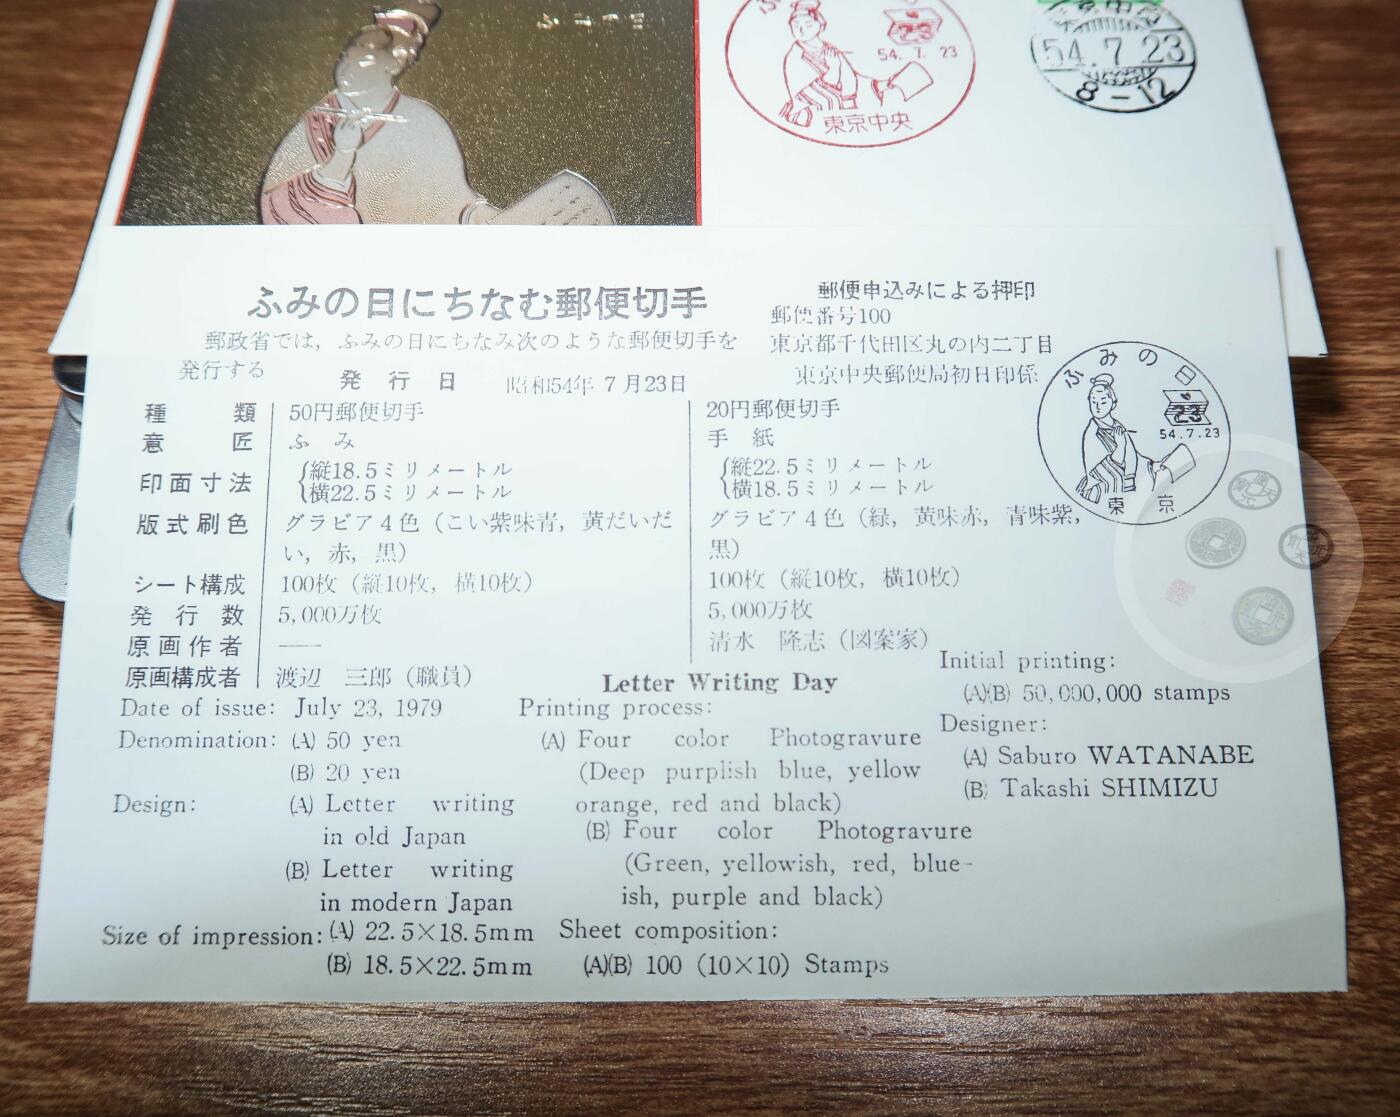 ふみの日
23
54.7.23
東京中央
54.7.23
8-12
ふみの日にちなむ郵便切手
郵政省では，ふみの日にちなみ次のような郵便切手を
発行する
発行日 昭和54年7月23日
郵便申込みによる押印
郵便番号100
東京都千代田区丸の内二丁目
東京中央郵便局初日印係
ふみの日
23
54.7.23
東京
種類 50円郵便切手 20円郵便切手
意匠 ふみ 手紙
印面寸法 {縦18.5ミリメートル {縦22.5ミリメートル
横22.5ミリメートル 横18.5ミリメートル
版式刷色 グラビア4色（こい紫味青，黄だいだ グラビア4色（緑，黄味赤，青味紫，
い，赤，黒） 黒）
シート構成 100枚（縦10枚，横10枚） 100枚（縦10枚，横10枚）
発行数 5,000万枚 5,000万枚
原画作者 —— 清水 隆志（図案家）
原画構成者 渡辺 三郎（職員）
Letter Writing Day
Date of issue: July 23, 1979
Denomination: (A) 50 yen
(B) 20 yen
Design: (A) Letter writing
in old Japan
(B) Letter writing
in modern Japan
Size of impression: (A) 22.5×18.5mm
(B) 18.5×22.5mm
Printing process:
(A) Four color Photogravure
(Deep purplish blue, yellow
orange, red and black)
(B) Four color Photogravure
(Green, yellowish, red, blue-
ish, purple and black)
Sheet composition:
(A)(B) 100 (10×10) Stamps
Initial printing:
(A)(B) 50,000,000 stamps
Designer:
(A) Saburo WATANABE
(B) Takashi SHIMIZU